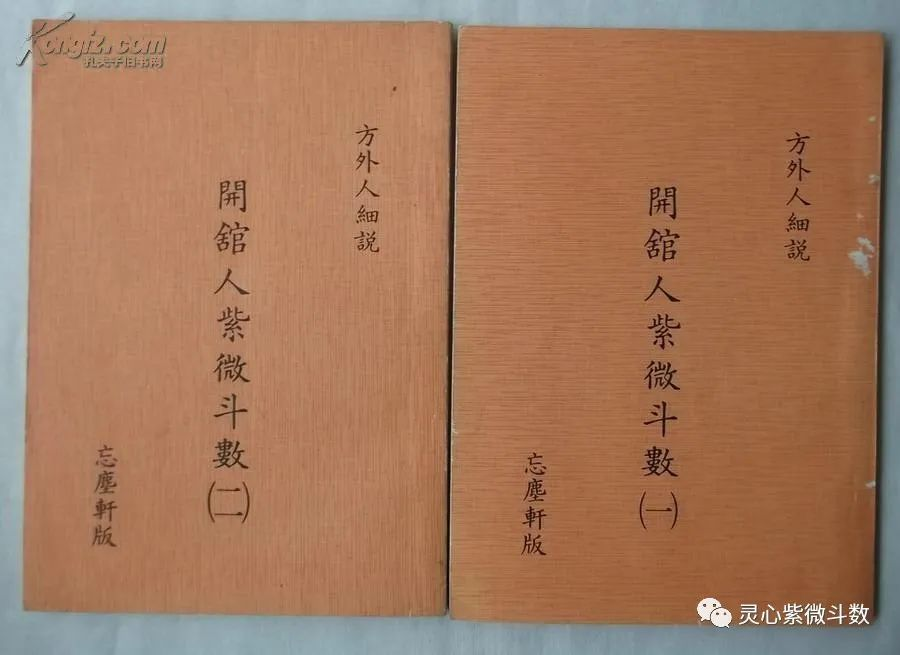 Kongfz.com
孔夫子旧书网
方外人細説
開舘人紫微斗數(二)
忘塵軒版
方外人細説
開舘人紫微斗數(一)
忘塵軒版
灵心紫微斗数